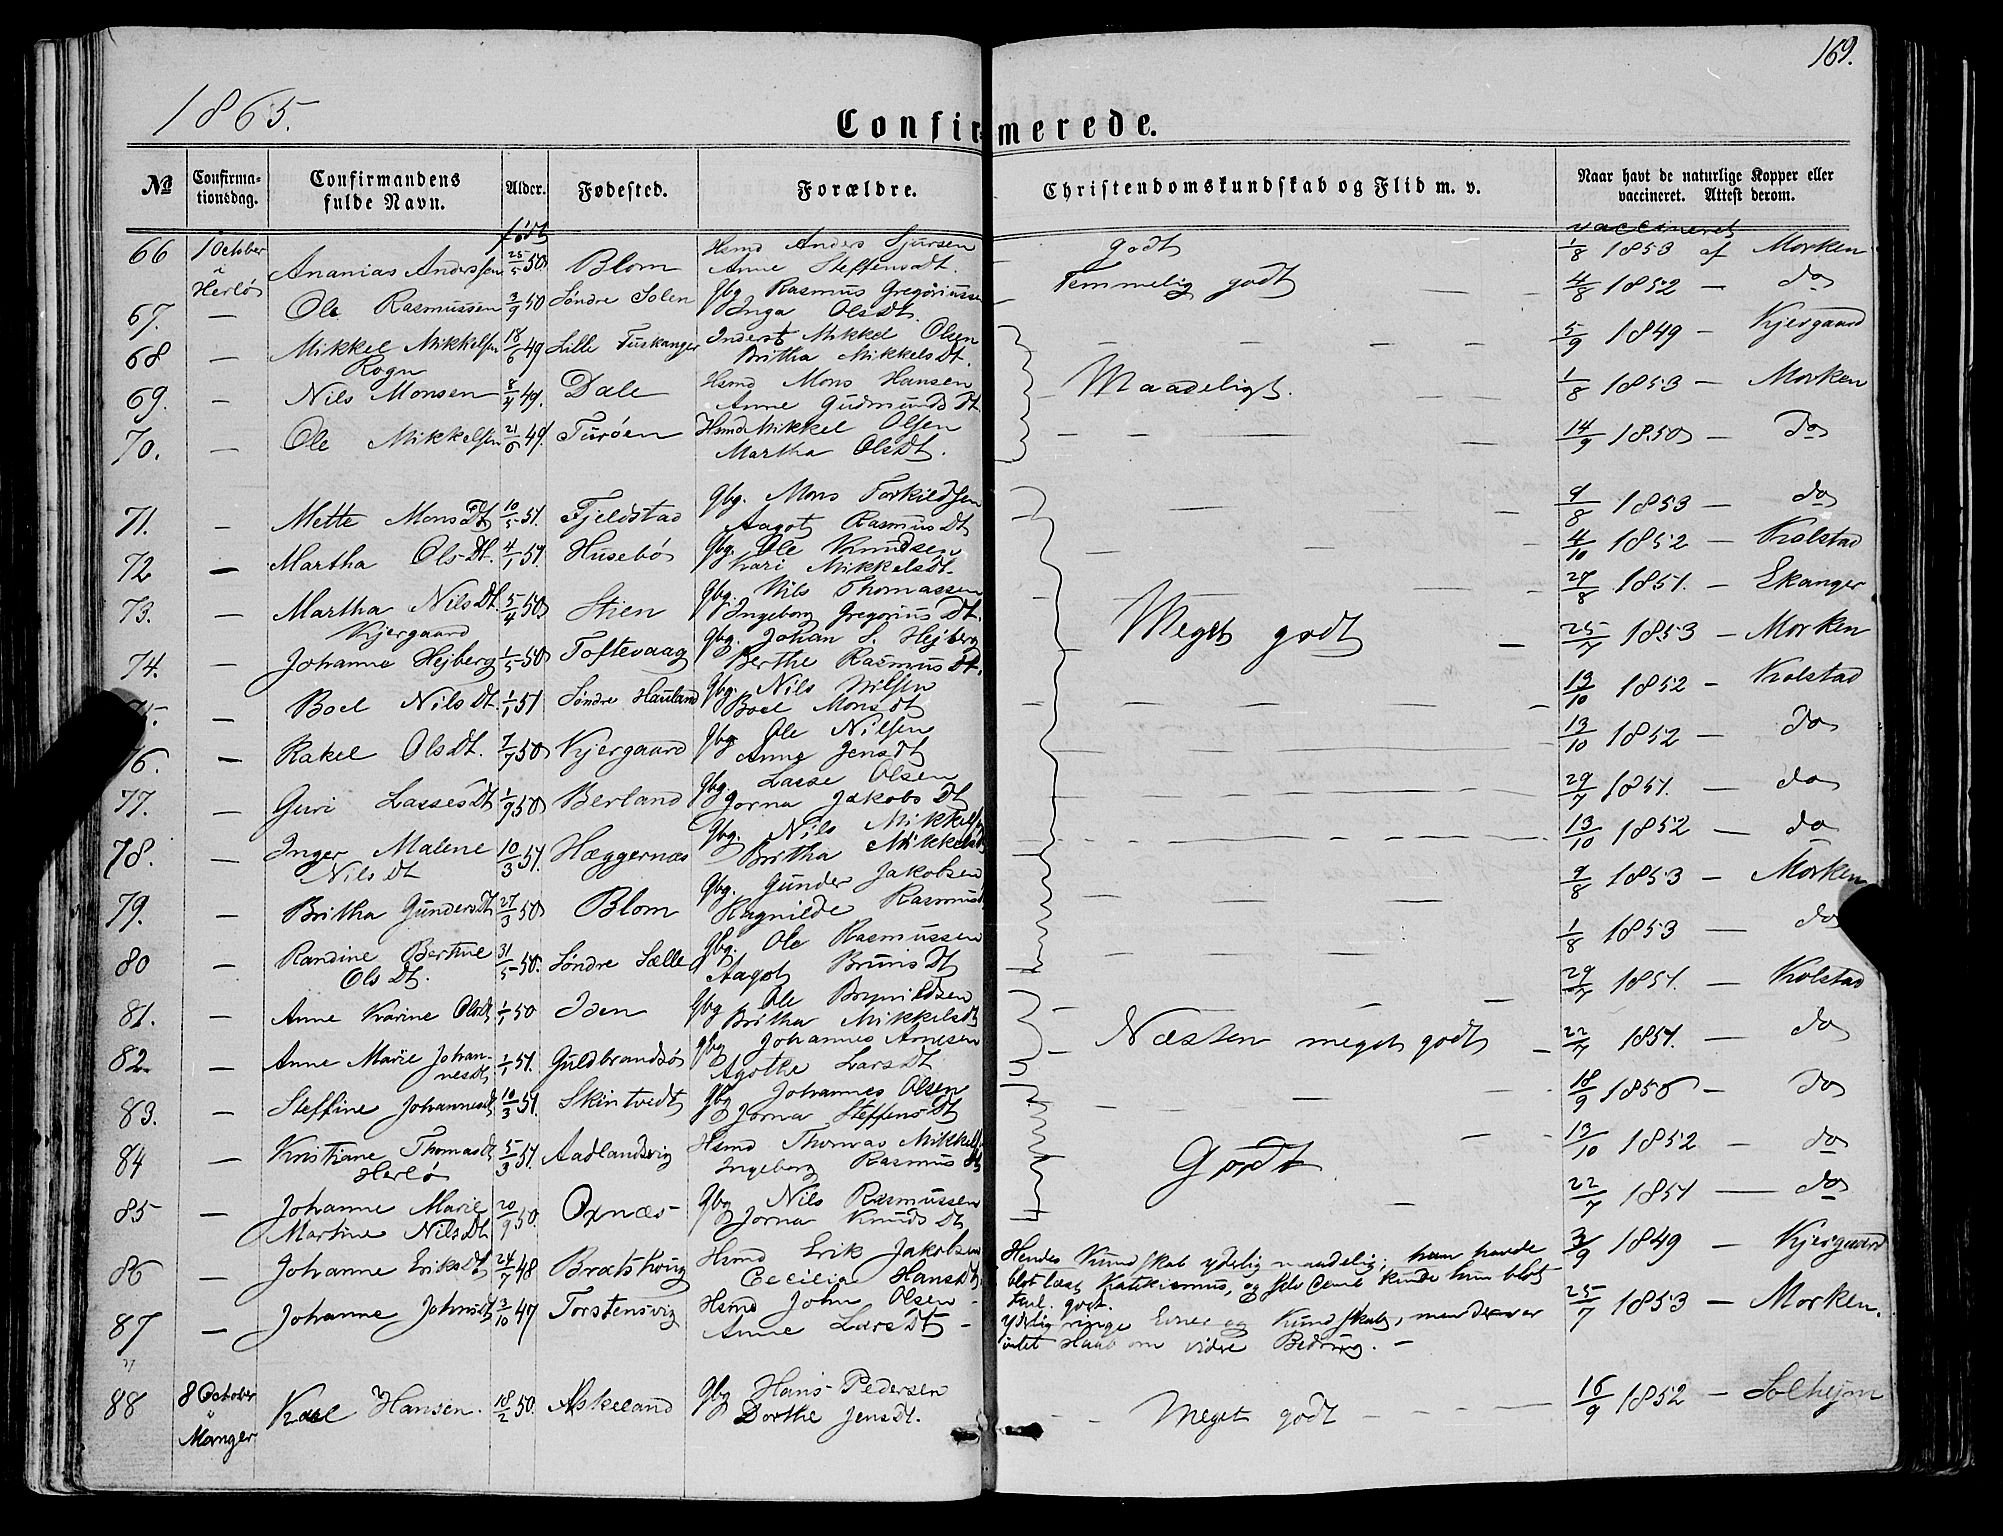 169.
1865.
Confirmerede.
No Confirmationsdag. Confirmandens fulde Navn. Alder. Fødested. Forældre. Christendomskundskab og Flid m. v. Naar havt de naturlige Kopper eller vaccineret. Attest derom.
født vaccineret
66 1 October i Herlø Ananias Anderssen 25/5 50 Blom Hsmd Anders Sjursen Anne Steffensdt. godt 1/8 1853 af Morken
67. — Ole Rasmussen 3/9 50 Søndre Solen Gbg Rasmus Gregoriussen Inga Olsdt. Temmelig godt — — 4/8 1852 — do
68 — Mikkel Mikkelsen Rogn 18/6 49 Lille Tuskanger Inderst Mikkel Olsen Britha Mikkelsdt. — — — — 5/9 1849 — Kjergaard
69. — Nils Monsen 8/4 49. Dale Hsmd Mons Hansen Anne Gudmundsdt Maadeligt. — — 1/8 1853 — Morken
70. — Ole Mikkelsen 21/6 49. Turöen Hsmd Mikkel Olsen Martha Olsdt. — — — — 14/9 1850 — do
71. — Mette Monsdt 10/5 51. Fjeldstad Gbg. Mons Torkildsen Aagot Rasmusdt — — — 9/8 1853 — do
72 — Martha Olsdt. 4/1 51. Husebø Gbg. Ole Knudsen Kari Mikkelsdt. — — — 4/10 1852 — Kolstad
73. — Martha Nilsdt. Kjergaard 5/4 50 Stien Gbg. Nils Thomassen Ingeborg Gregoriusdt. — — 27/8 1851. — Ekanger
74. — Johanne Hejberg 1/5 50 Toftevaag Gbg. Johan S. Hejberg Berthe Rasmusdt. Meget godt — 25/7 1853 — Morken
— Boel Nilsdt. 1/1 51 Søndre Hauland Gbg. Nils Nilsen Boel Monsdt — — — 13/10 1852 — Kolstad
76. — Rakel Olsdt. 7/7 50 Kjergaard Gbg Ole Nilsen Anne Jensdt — — — 13/10 1852 — do
77. — Guri Lassesdt 1/9 50 Berland Gbg Lasse Olsen Jorna Jakobsdt — — — 29/7 1851. — do
78. — Inger Malene Nilsdt 10/3 51. Hæggernæs Gbg. Nils Mikkels Britha Mikkelsdt — — — 13/10 1852 — do
79. — Britha Gundersdt 27/3 50 Blom Gbg. Gunder Jakobsen Ragnilde Rasmusd — — — 9/8 1853 — Morken
80 — Randine Bertine Olsdt. 31/5 50. Søndre Sælle Gbg. Ole Rasmussen Aagot Brunsdt — — — 1/8 1853 — do
81. — Anne Karine Olsdt 1/1 50 Iden Gbg Ole Brynildsen Britha Mikkelsdt — — — 29/7 1851. — Kolstad
82. — Anne Marie Johannesdt 1/1 51. Guldbrandsø Gbg Johannes Arnesen Agothe Larsdt Næsten meget godt — 22/7 1851. — do
83. — Steffine Johannesdt 10/3 51. Skintvedt Gbg Johannes Olsen Jorna Steffensdt — — — 18/9 1850 — do
84 — Kristiane Thomasdt Herlø 5/3 51. Aadlandsvig Hsmd Thomas Mikkels Ingeborg Rasmusdt Godt — — 13/10 1852 — do
85 — Johanne Marie Martine Nilsdt 20/9 50. Oxnæs Gbg Nils Rasmussen Jorna Knudsdt — 22/7 1851 — do
86 — Johanne Eriksdt 24/7 48 Bratshoug Hsmd Erik Jakobsen Cecilia Hansdt. Hendes Kundskab yderlig maadelig; hun havde blot læst Katekismus, og selv denne kunde hun blot teml. godt. 3/9 1849 — Kjergaard
87 — Johanne Johnsdt 3/10 47 Torstensvig Hsmd John Olsen — Anne Larsdt — yderlig ringe Evner og Kundskab, men der var intet Haab om videre Bedring. — 25/7 1853 — Morken.
88 8 October i Manger Karl Hansen. 18/2 50. Askeland Gbg Hans Pedersen Dorthe Jensdt. — — Meget godt — — — 16/9 1852 — Solhejm